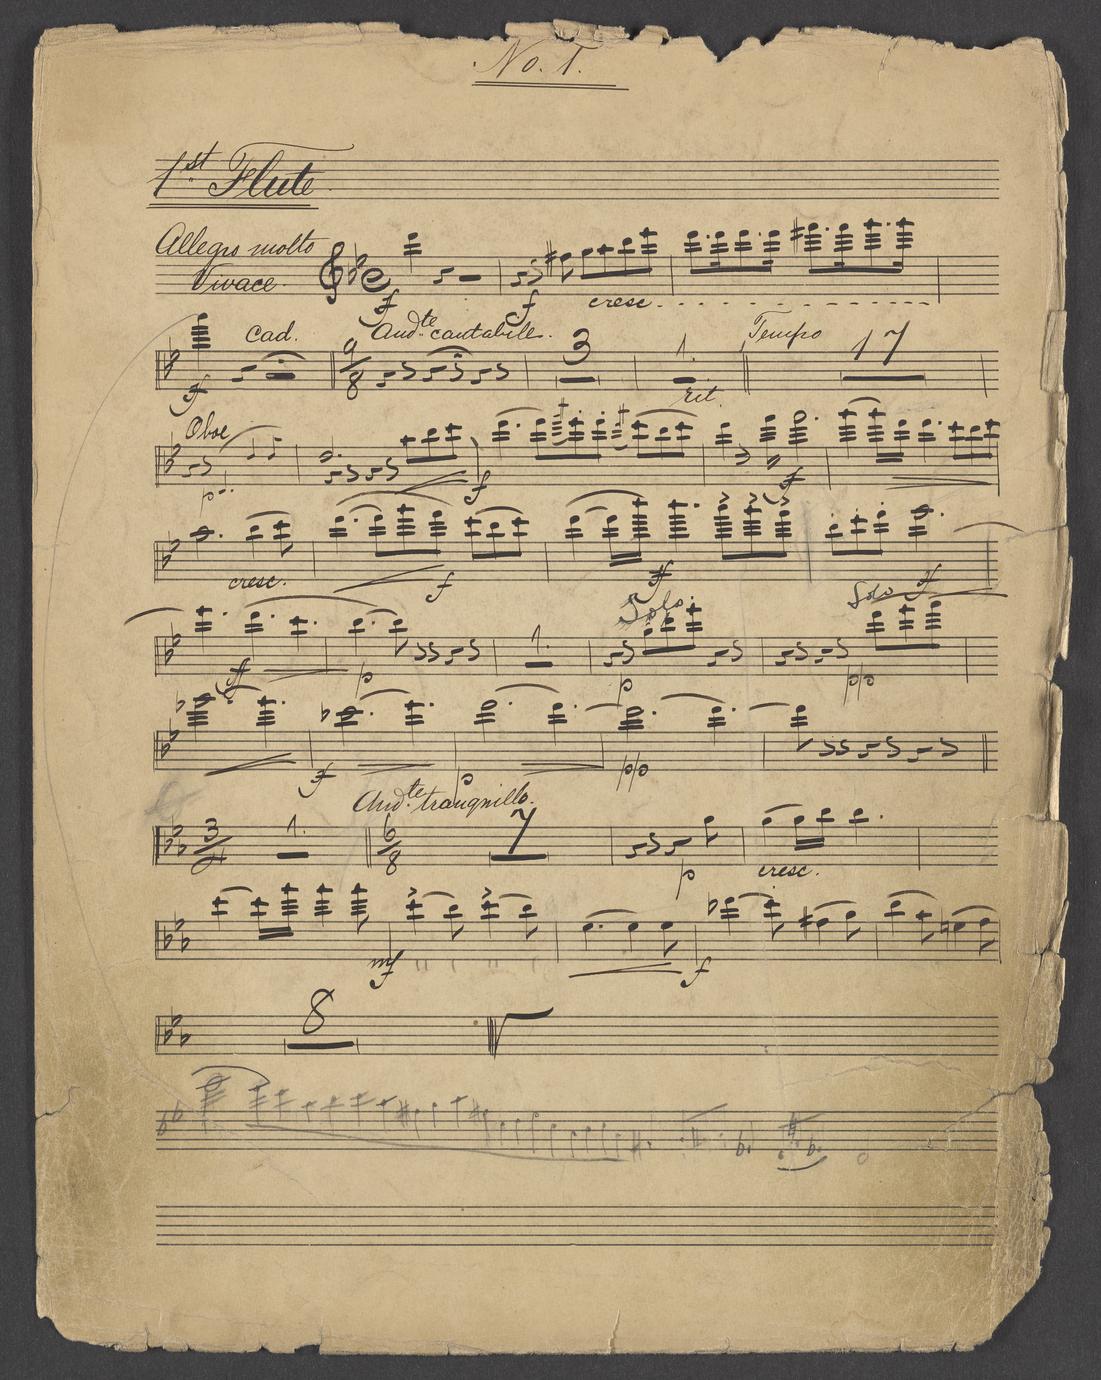 No. 1.
1st Flute
Allegro molto
Vivace.
f f cresc.
Cad. Andte cantabile. 3 1. Tempo 17
9
8
ff rit.
Oboe
p f ff
cresc. f ff Solo ff
Solo.
1.
ff p p pp
ff p pp
Andte tranquillo.
3 1. 6 7
2 8
p cresc.
mf f
8